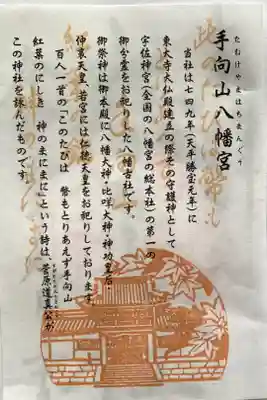 手向山八幡宮
たむけやまはちまんぐう
当社は七四九年(天平勝宝元年)に
東大寺大仏殿建立の際その守護神として
宇佐神宮(全国の八幡宮の総本社)の第一の
御分霊をお祀りした八幡古社です。
御祭神は御本殿に八幡大神・比咩大神・神功皇后・
仲哀天皇、若宮には仁徳天皇をお祀りしております。
百人一首の「このたびは 幣もとりあえず手向山
紅葉のにしき 神のまにまに」という詩は、菅原道真公が
この神社を詠んだものです。